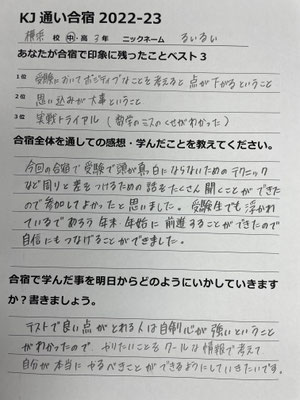 KJ 通い合宿 2022-23
横浜 校 中・高 3 年 ニックネーム るいるい
あなたが合宿で印象に残ったことベスト3
1位 受験においてポジティブなことを考えると点が下がるということ
2位 思い込みが大事ということ
3位 実戦トライアル(数学のミスのくせがわかった)
合宿全体を通しての感想・学んだことを教えてください。
今回の合宿で受験で頭が真っ白にならないためのテクニック
など周りと差をつけるための話をたくさん聞くことができた
ので参加してよかったと思いました。受験生でも浮かれ
ているであろう年末・年始に前進することができたので
自信にもつなげることができました。
合宿で学んだ事を明日からどのようにいかしていきます
か?書きましょう。
テストで良い点がとれる人は自制心が強いということ
がわかったので やりたいことをクールな情報で考えて
自分が本当にやるべきことができるようにしていきたいです。